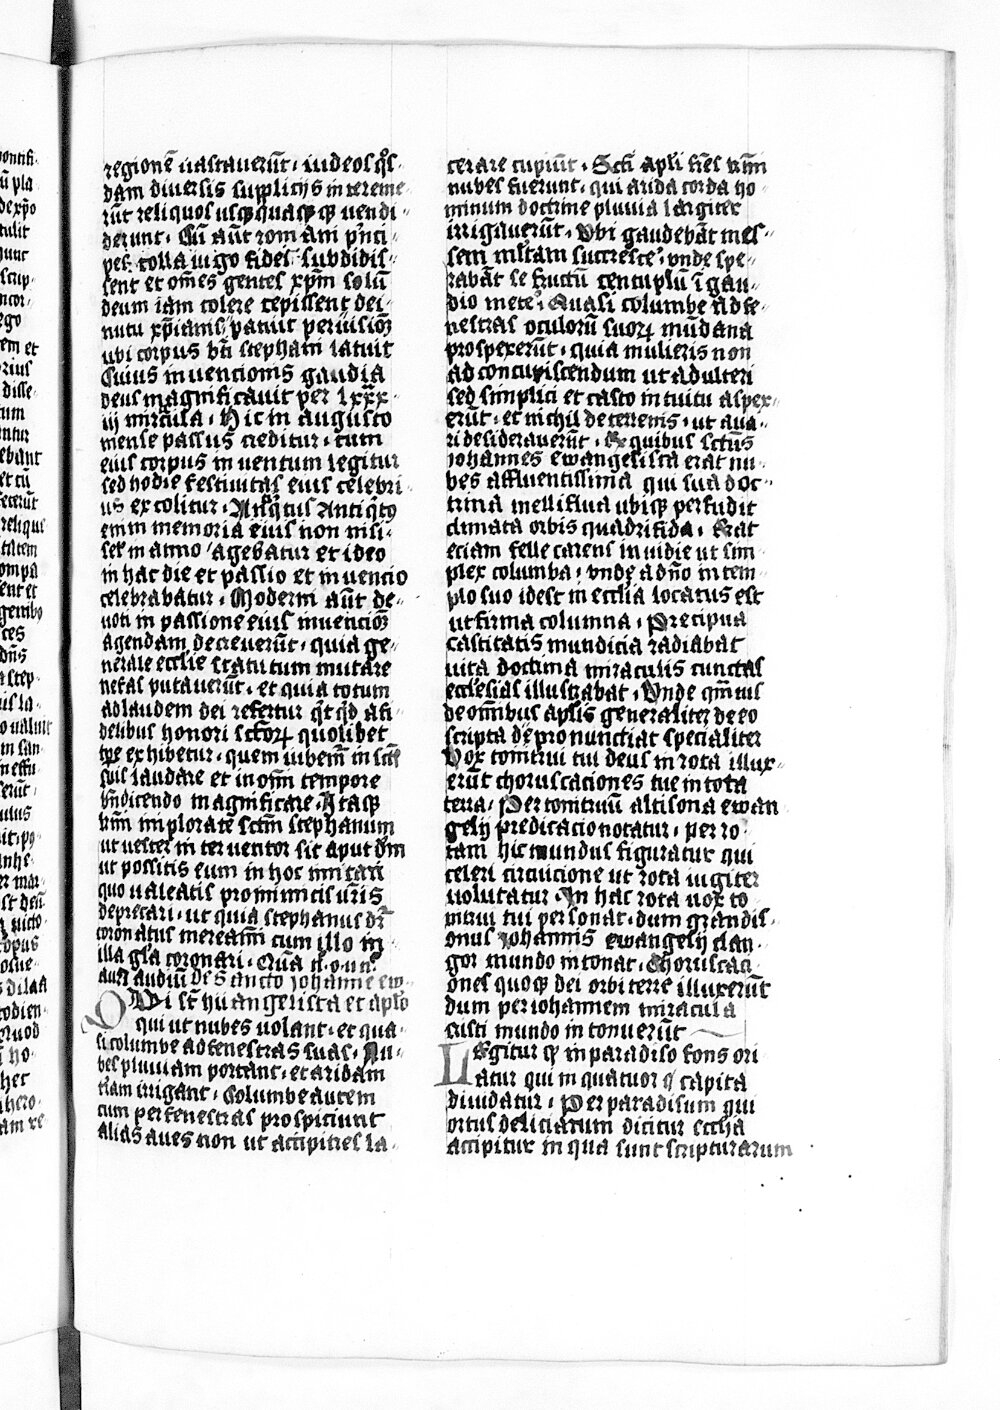 regionē uastauerūt · iudeos qͦs-
dam diuersis supplicijs intereme-
rūt reliquos usqꝫ quaqꝫ ꝙ uendi-
derunt · Cū aūt romani pͥnci-
pes colla iugo fidei subdidis-
sent et om̄es gentes xp̄m solū
deum iam colere cepissent dei
nutu xp̄ianis patuit per uisionē
ubi corpus bt̄i stephani latuit
Cuius inuentionis gaudia
deus magnificauit per lxxx
iij miracula · Hic in augusto
mense passus creditur · cum
eius corpus inuentum legitur
sed hodie festiuitas eius celebri-
us excolitur · antiqͥto
enim memoria eius non nisi
semel in anno agebatur et ideo
in hac die et passio et inuencio
celebrabatur · Moderni aūt de-
uoti in passione eius inuencionē
agendam decreuerūt · quia ge-
nerale eccl̄ie statutum mutare
nefas putauerūt · et quia totum
ad laudem dei refertur qͥcqͥd a fi-
delibus honori sc̄torꝝ quolibet
tp̄e exhibetur · quem iubem̄ in sc̄is
suis laudare et in om̄i tempore
bn̄dicendo magnificare · Itaqꝫ
kr̄mi implorate sc̄tm stephanum
ut uester interuentor sit aput dm̄
ut possitis eum in hoc imitari
quo ualeatis pro inimicis ur̄is
deprecari · ut quia stephanus dr̄
coronatus mereamī cum illo in
illa gl̄a coronari · Qūa
aurꝭ audiuī De Sancto Johanne ew-
Qui st hii angelista et aplo
qui ut nubes uolant · et qua-
si columbe ad fenestras suas · Nu-
bes pluuiam portant · et aridam
tr̄am irrigant · Columbe autem
cum per fenestras prospiciunt
alias aues non ut accipitres la-
cerare cupiūt · Sc̄ti apl̄i fr̄es kr̄mi
nubes fuerunt · qui arida corda ho-
minum doctrine pluuia largiter
irrigauerūt · Vbi gaudebāt mes-
sem multam succrescere · unde spe-
rabāt se fructū centuplū ī gau-
dio metere · Quasi columbe ad fe-
nestras oculorū suorꝝ mūdana
prospexerūt · quia mulieris non
ad concupiscendum ut adulteri
sed simplici et casto intuitu aspex-
erūt · et nichil de terrenis · ut aua-
ri desiderauerūt · Ex quibus sctūs
johannes ewangelista erat nu-
bes affluentissima qui sua doc-
trina melliflua ubiqꝫ perfudit
climata orbis quadrifida · Erat
eciam felle carens inuidie ut sim-
plex columba · vnde a dn̄o in tem-
plo suo id est in eccl̄ia locatus est
ut firma columna · Precipua
castitatis mundicia radiabat
uita doctrina miraculis cunctas
ecclesias illustrabat · Vnde qm̄uis
de om̄ibus apl̄is generaliter de eo
scripta de pronunciat specialiter
Vox tonitrui tui deus in rota illux-
erūt choruscaciones tue in tota
terra · Per tonitruū altisona ewan
gelij predicacio notatur · per ro-
tam hic mundus figuratur qui
celeri circuicione ut rota iugiter
uolutatur · In hac rota uox to
nitrui tui personat · dum grandis-
onus johannis ewangelij clan-
gor mundo intonat · Choruscaci
ones quoqꝫ dei orbi terre illuxerūt
dum per iohannem miracula
cristi mundo intonuerūt
Legitur ꝙ in paradiso fons ori
atur qui in quatuor capita
diuidatur · Per paradisum qui
ortus deliciarum dicitur ecclia
accipitur in qua sunt scripturarum